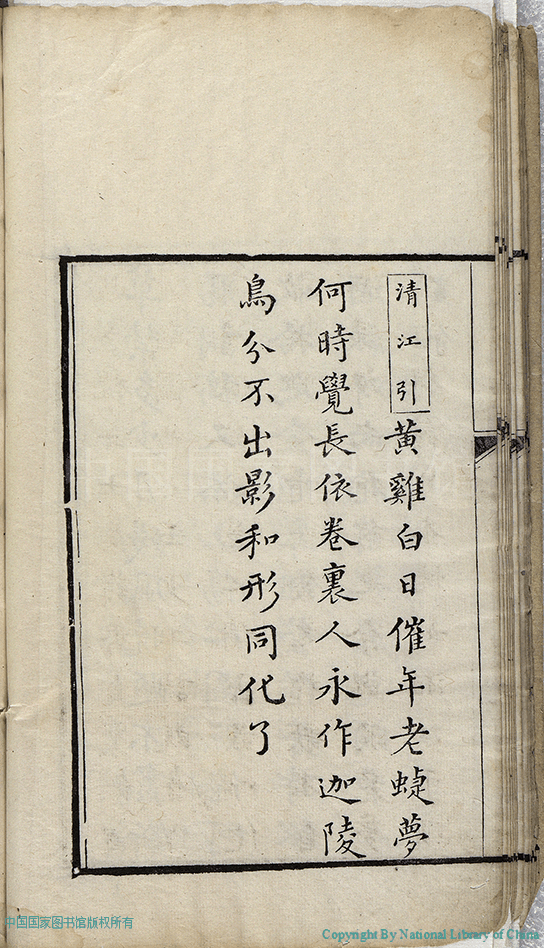 清江引 黄雞白日催年老蝭夢
何時覺長依卷裏人永作迦陵
鳥分不出影和形同化了
中国国家图书馆版权所有
Copyright By National Library of China